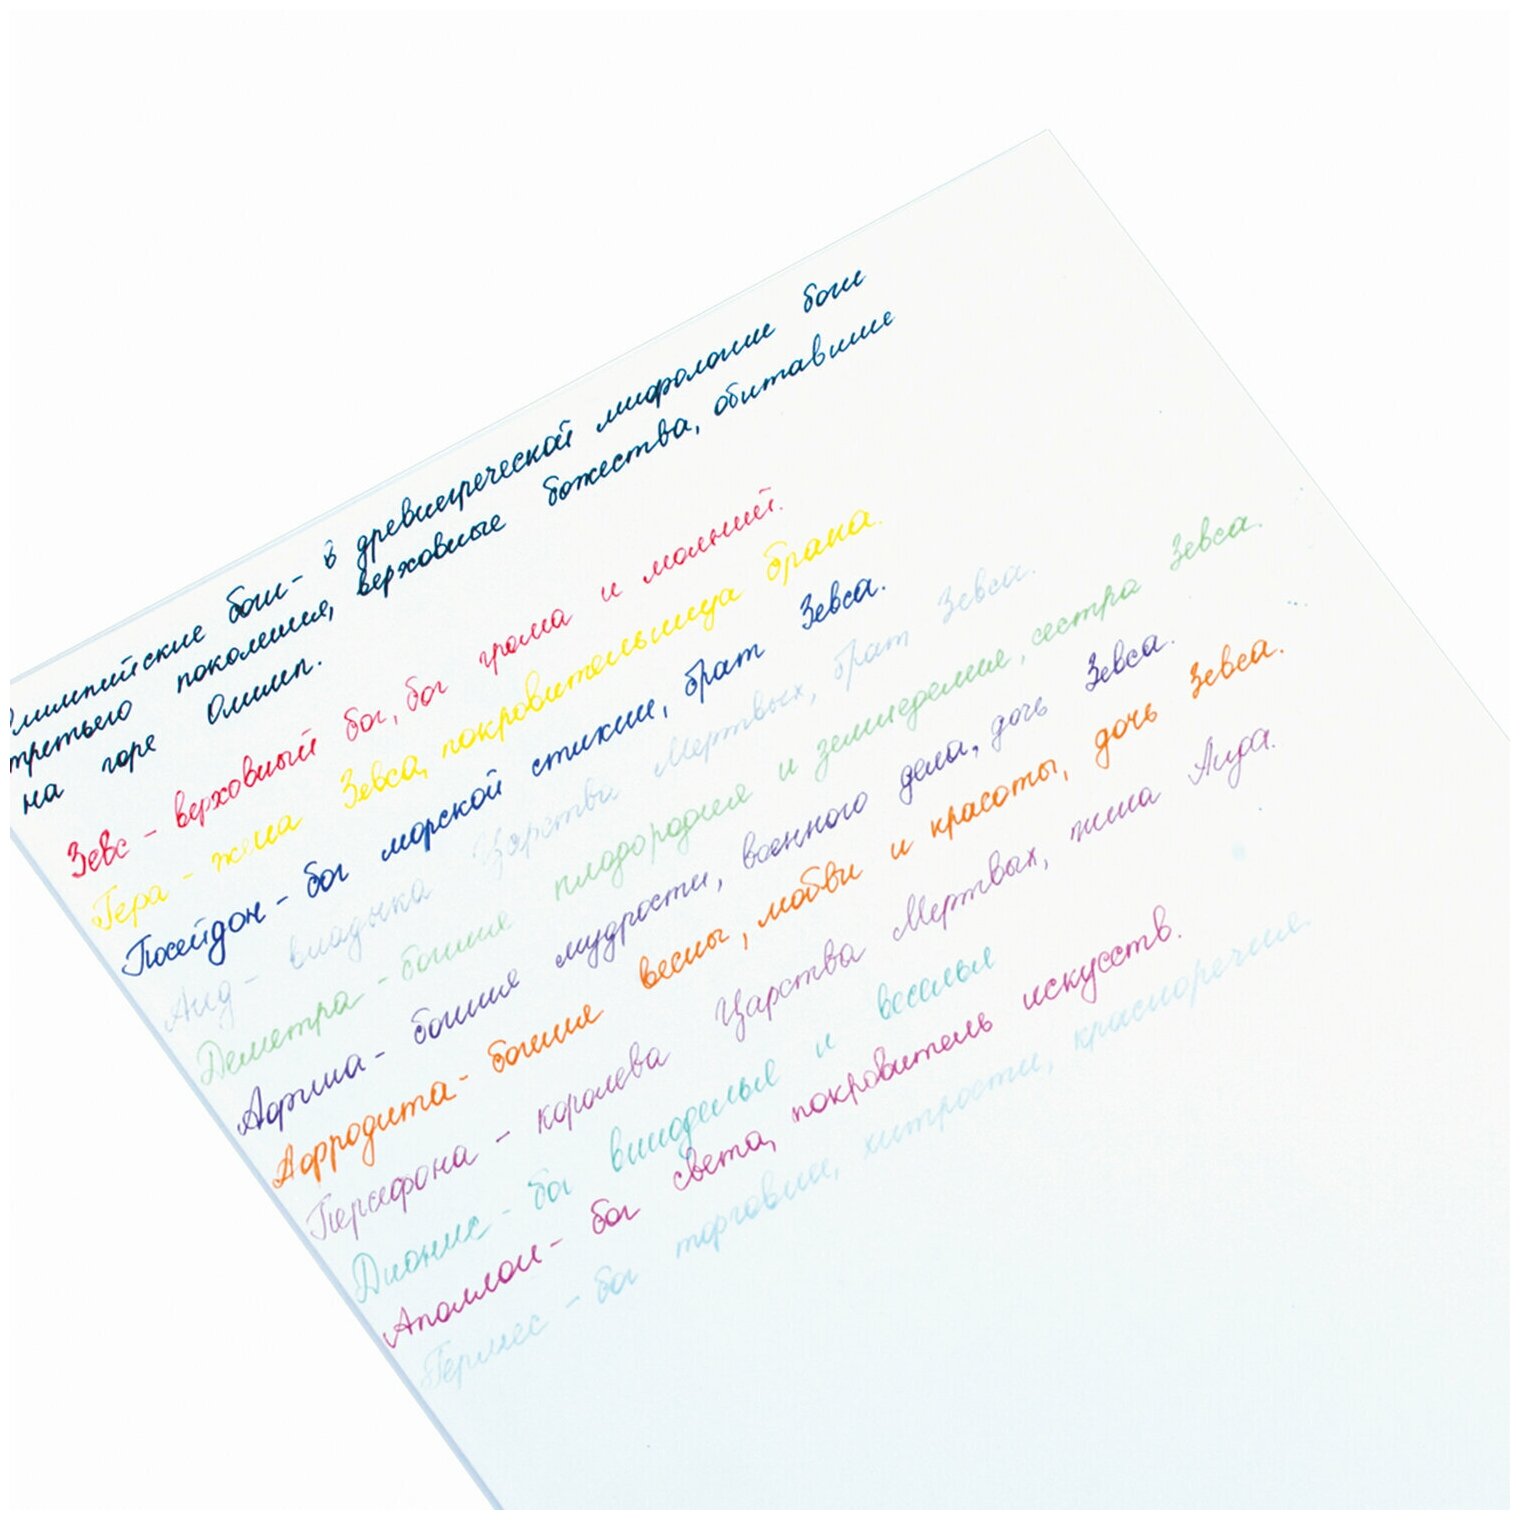 Олимпийские боги - в древнегреческой мифологии боги
третьего поколения, верховные божества, обитавшие
на горе Олимп.
Зевс - верховный бог, бог грома и молний.
Гера - жена Зевса, покровительница брака.
Посейдон - бог морской стихии, брат Зевса.
Аид - владыка Царства Мертвых, брат Зевса.
Деметра - богиня плодородия и земледелия, сестра Зевса.
Афина - богиня мудрости, военного дела, дочь Зевса.
Афродита - богиня весны, любви и красоты, дочь Зевса.
Персефона - королева Царства Мертвых, жена Аида.
Дионис - бог виноделья и веселья
Аполлон - бог света, покровитель искусств.
Гермес - бог торговли, хитрости, красноречия.